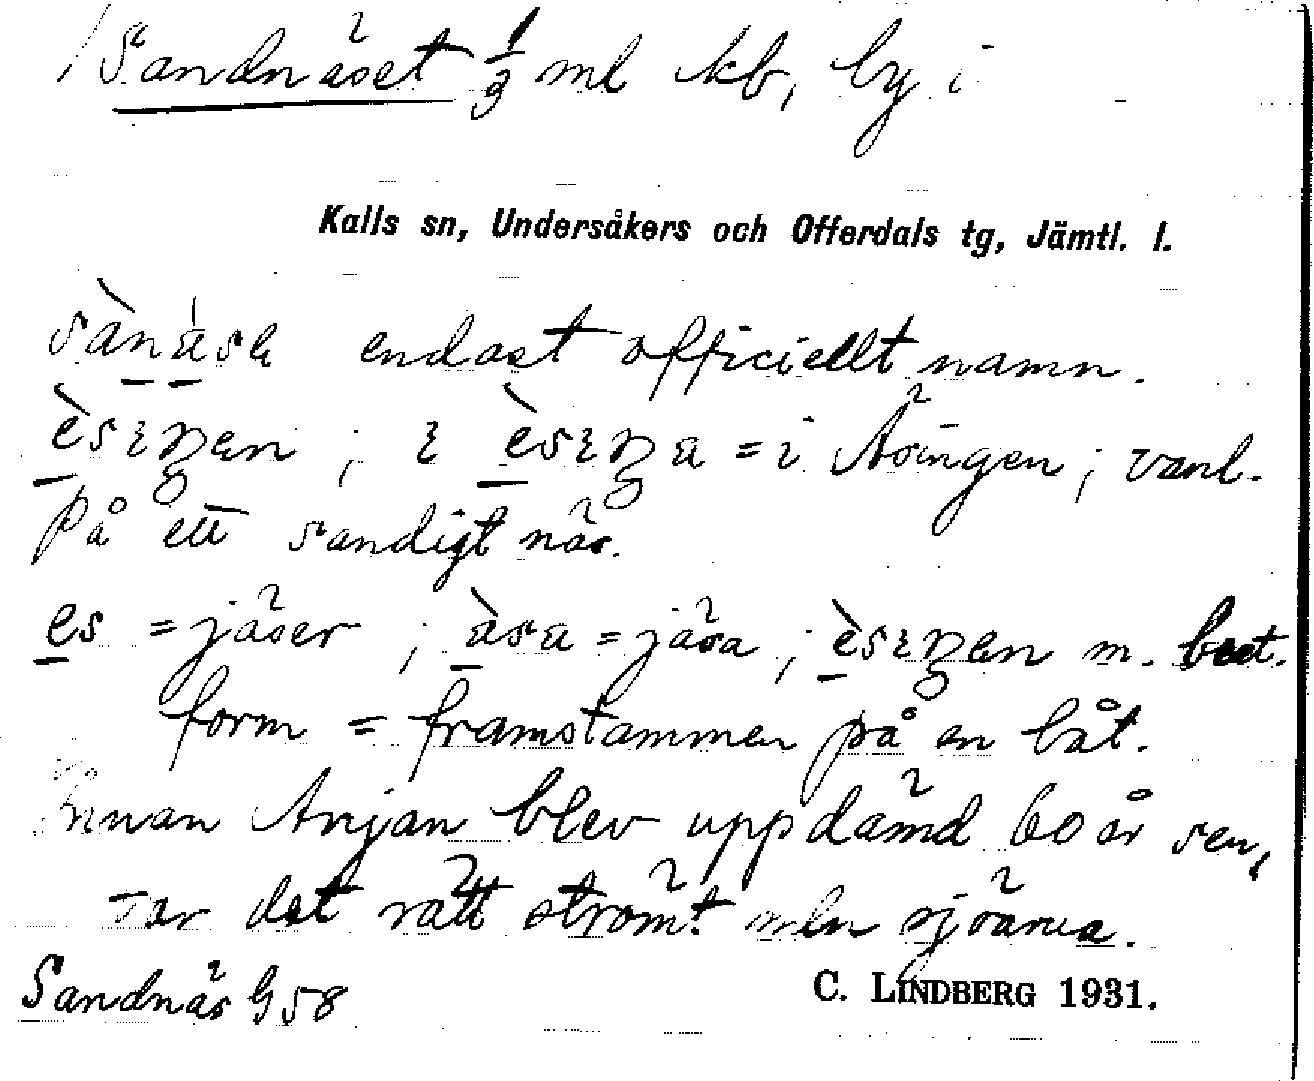 Sandnäset 1/3 ml kb, by i
Kalls sn, Undersåkers och Offerdals tg, Jämtl. l.
endast officiellt namn.
= i Äsingen; vanl.
på ett sandigt näs.
es = jäser; = jäsa; m. best.
form = framstammen på en båt.
Innan Anjan blev uppdämd 60 år sen,
var det rätt strömt mln sjöarna.
Sandnäs G58
C. LINDBERG 1931.